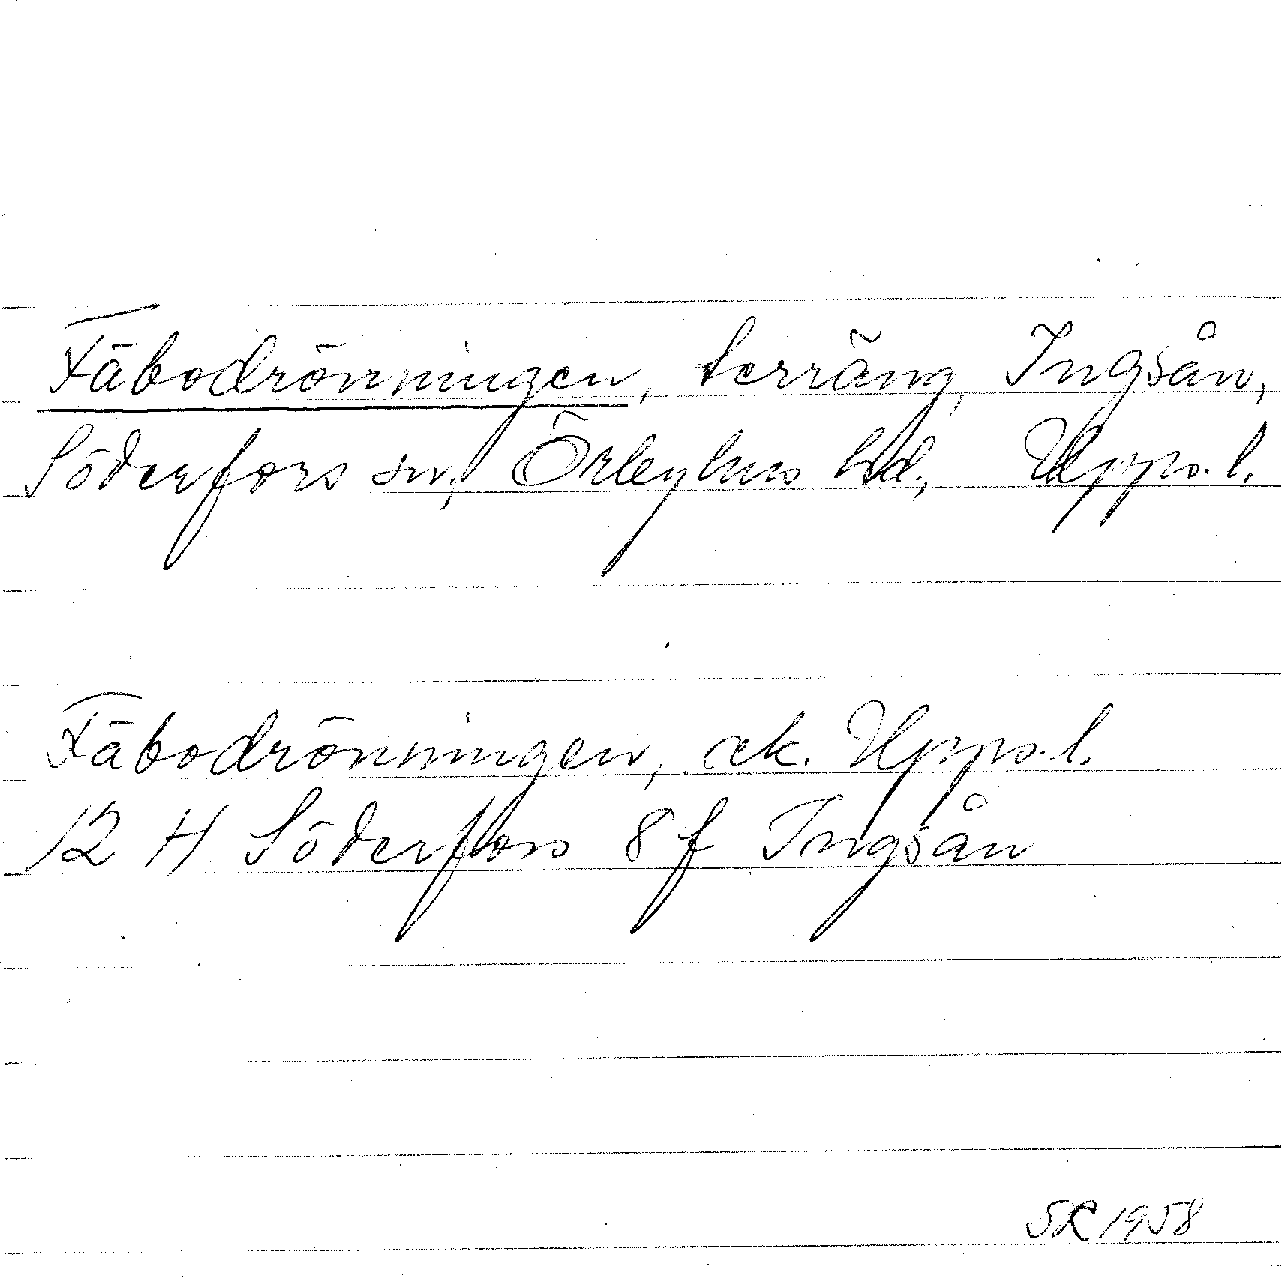 Fäbodrönningen, terräng, Ingsån,
Söderfors sn, Örbyhus hd, Upps.l.
Fäbodrönningen, ek. Upps.l.
12 H Söderfors 8f Ingsån
SR 1958